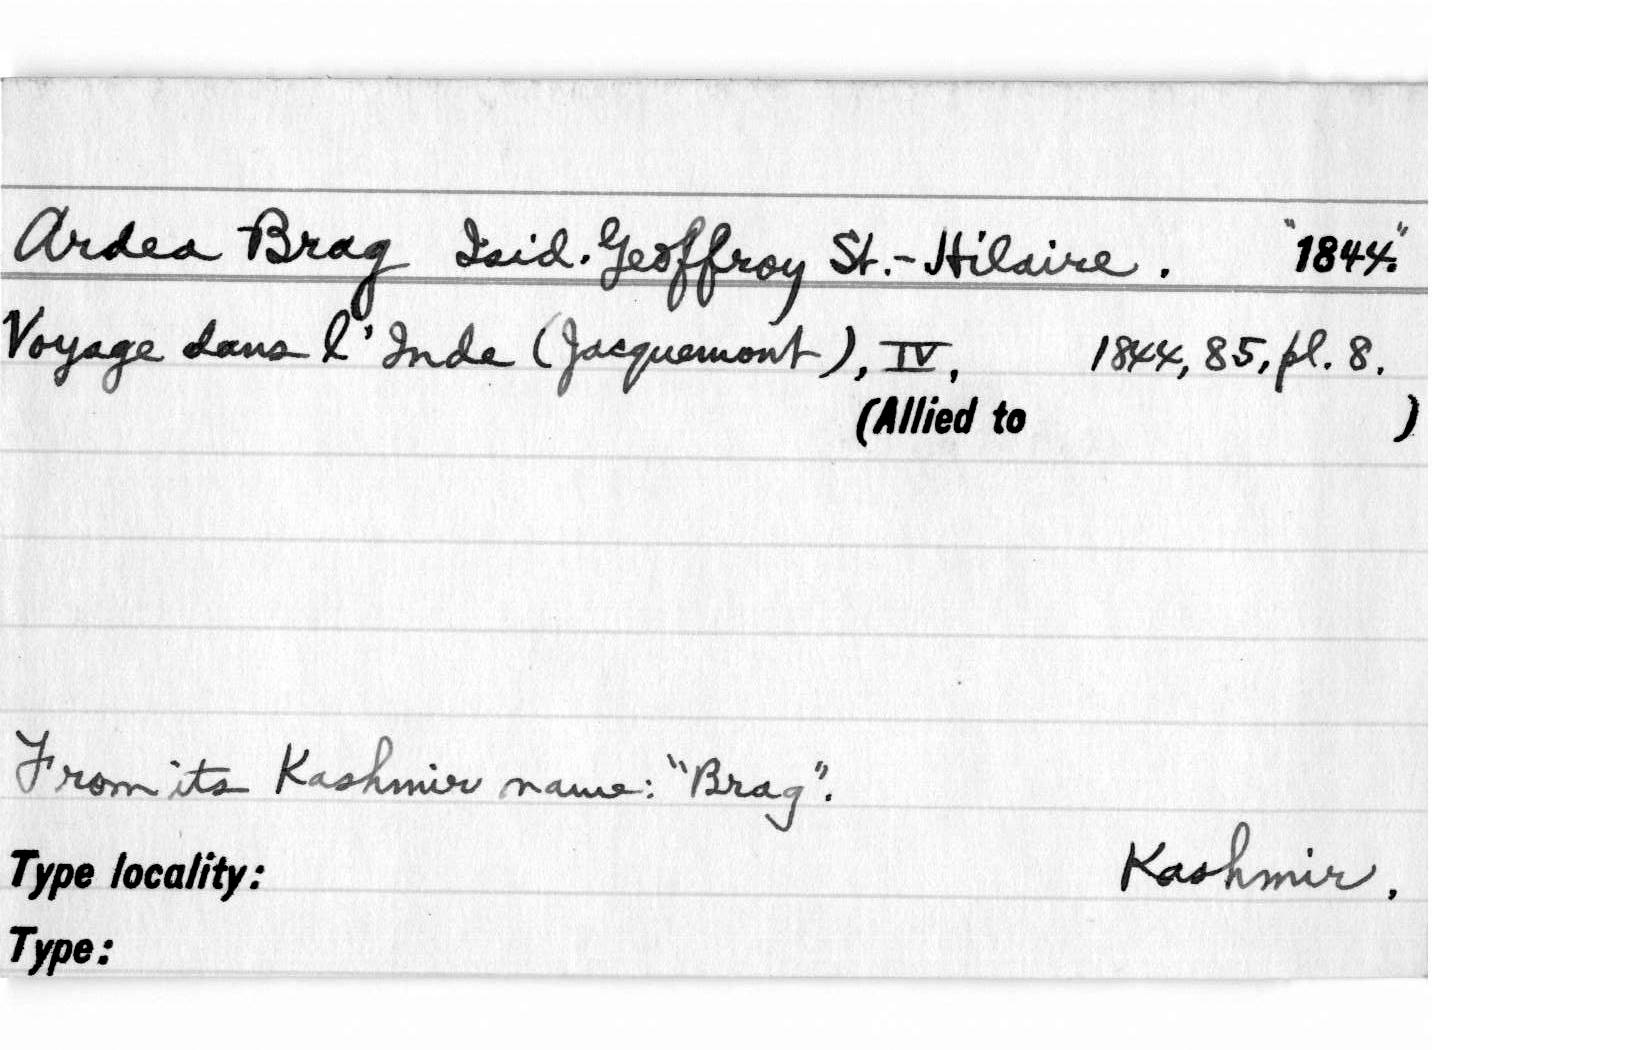 Ardea Brag Isid. Geoffroy St.-Hilaire. "1844."
Voyage dans l'Inde (Jacquemont), IV, 1844, 85, pl. 8.
(Allied to )
From its Kashmir name: "Brag".
Type locality: Kashmir.
Type: